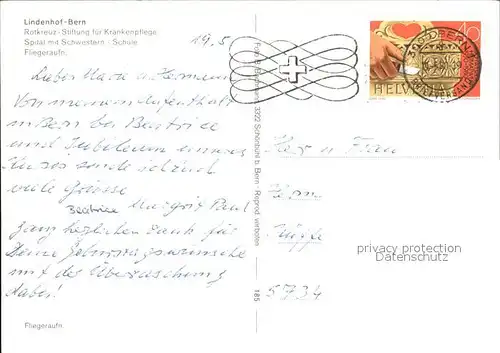 Lindenhof-Bern
Rotkreuz-Stiftung für Krankenpflege
Spital mit Schwestern / Schule
Fliegeraufn.
19.5
Lieber Maria u Hermann
Von meinem Aufenthalt
in Bern bei Beatrice
und Jubiläum unseres
Kurses sende ich euch
viele Grüsse
Beatrice Margrit Paul
Ganz herzlichen Dank für
Deine Geburtstagswünsche
mit der Überraschung
dabei!
Fliegeraufn.
3322 Schönbühl b. Bern
Reprod. verboten
185
40
HELVETIA
BERN
Herr u Frau
Herm
5734
privacy protection
Datenschutz